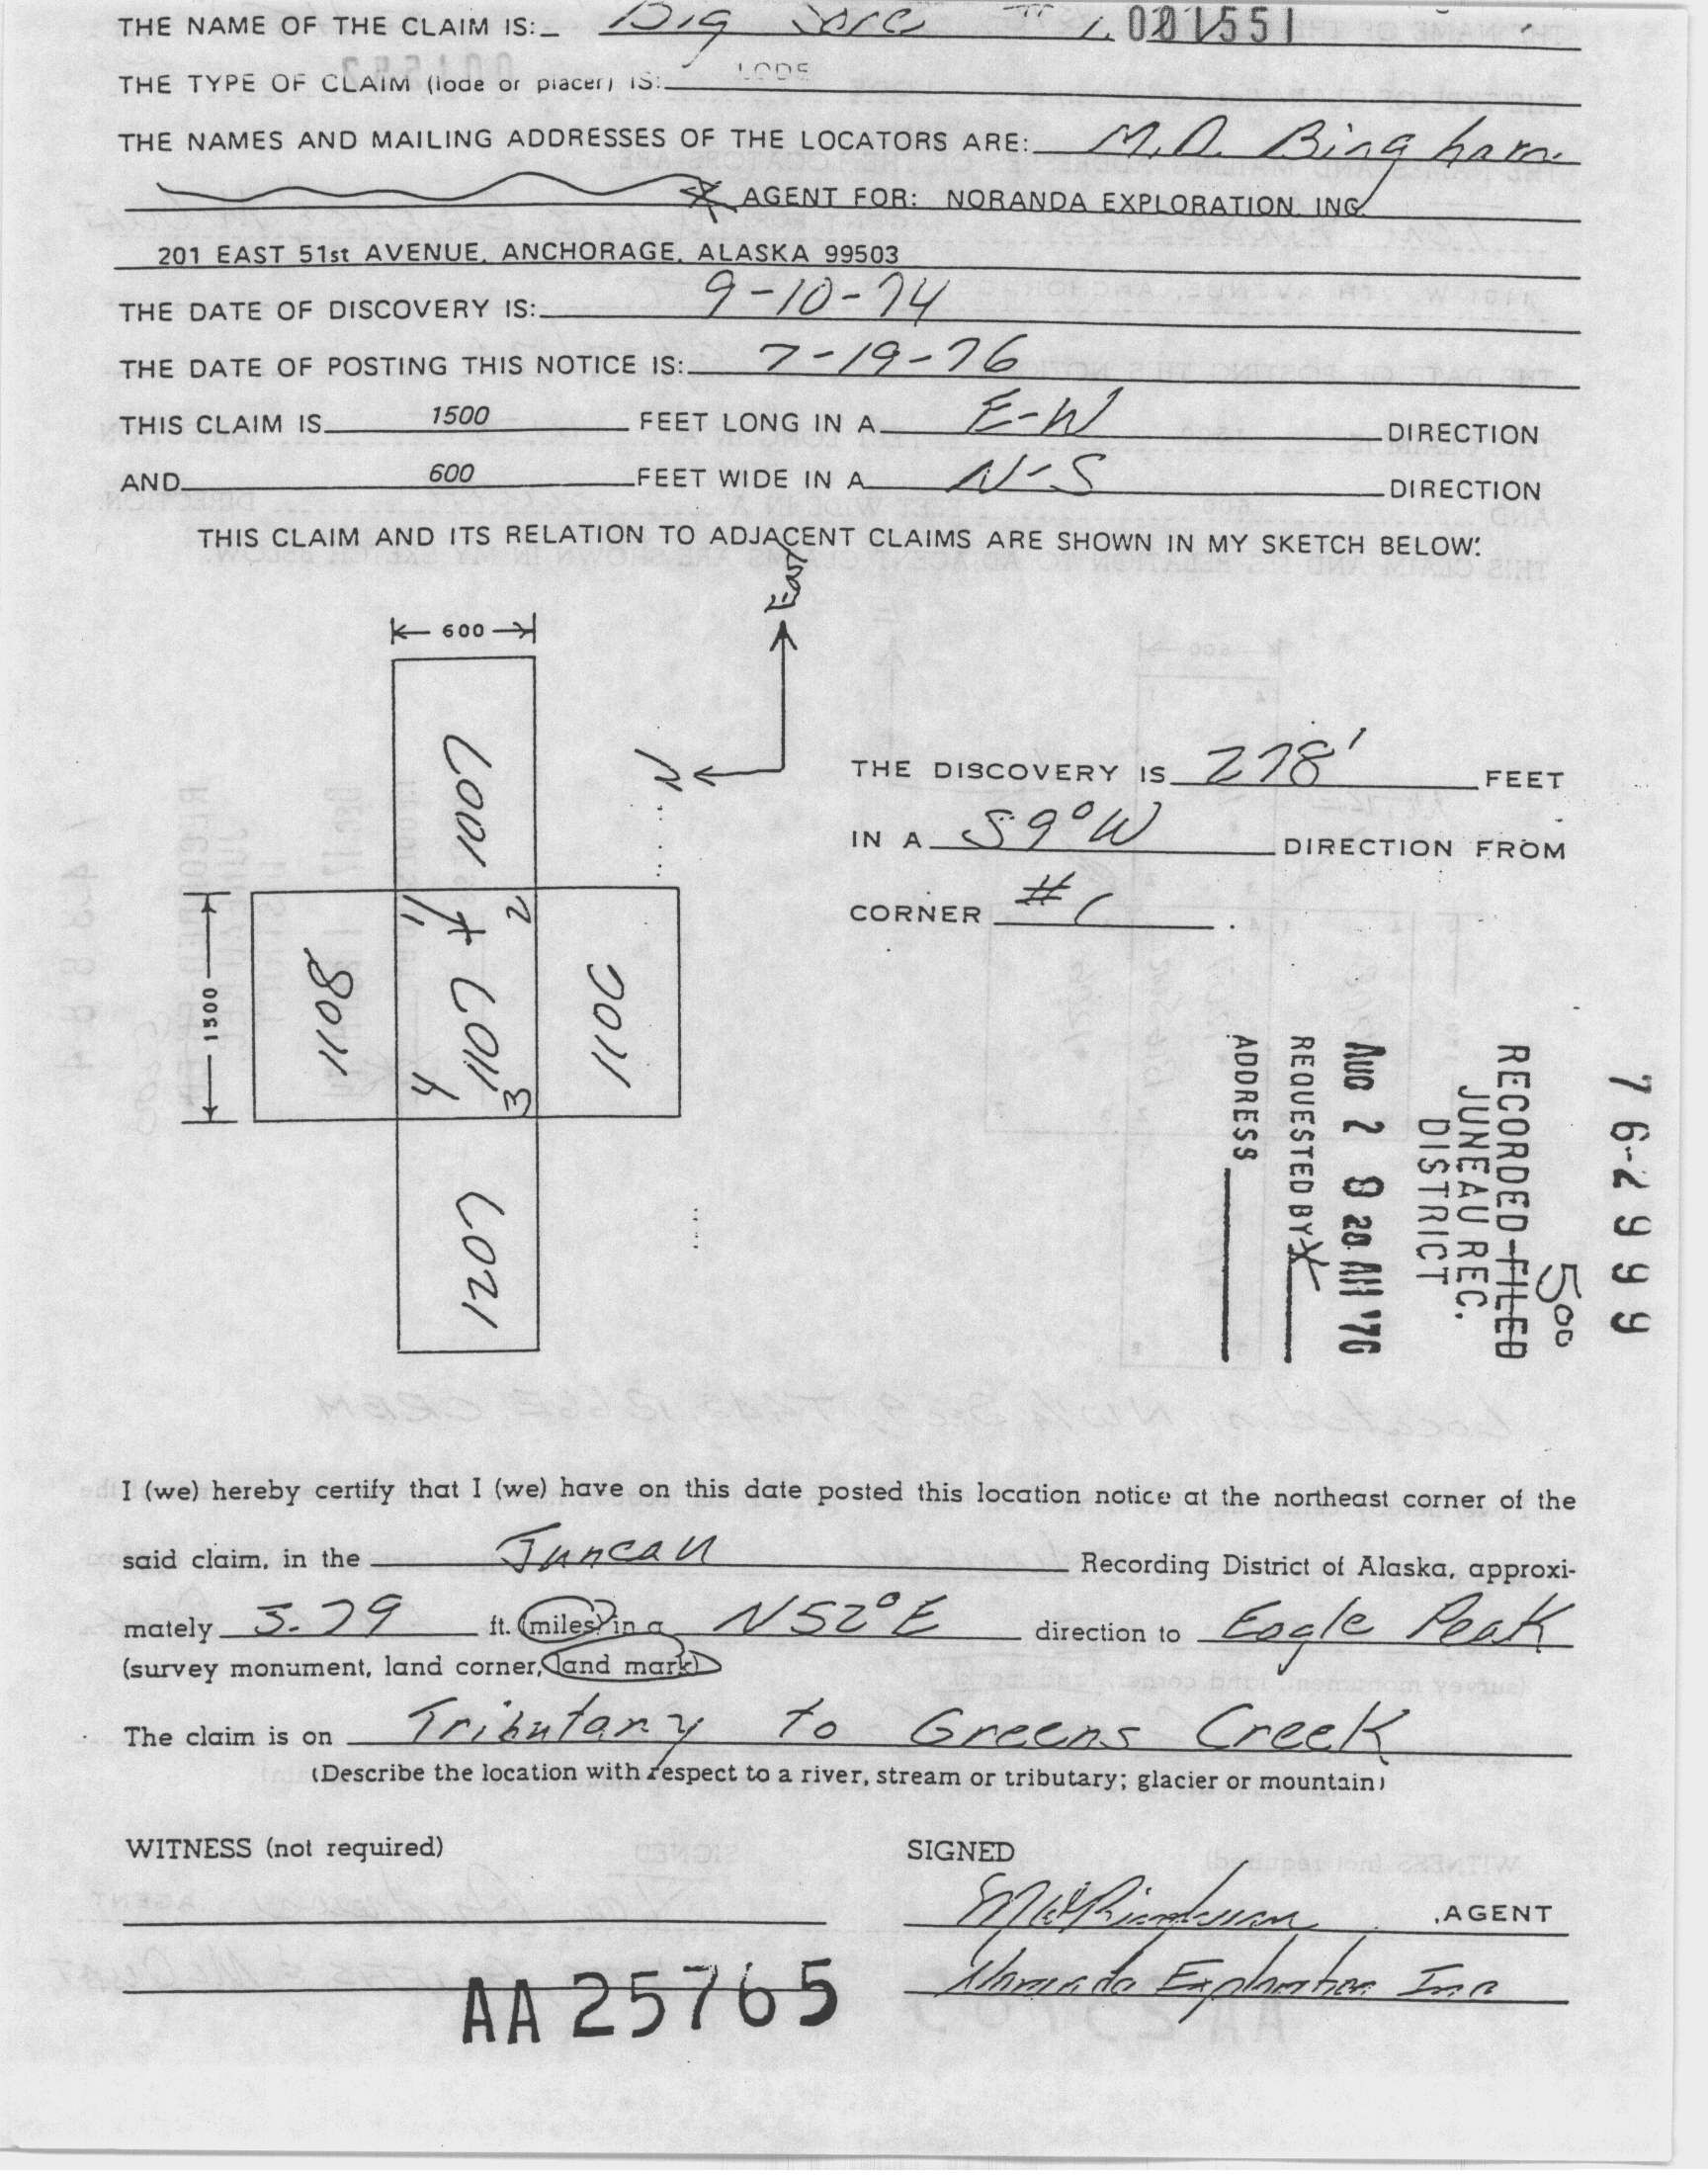 THE NAME OF THE CLAIM IS: Big Sore # 001551
THE TYPE OF CLAIM (lode or placer) IS: LODE
THE NAMES AND MAILING ADDRESSES OF THE LOCATORS ARE: M.D. Bingham
AGENT FOR: NORANDA EXPLORATION, INC.
201 EAST 51st AVENUE, ANCHORAGE, ALASKA 99503
THE DATE OF DISCOVERY IS: 9-10-74
THE DATE OF POSTING THIS NOTICE IS: 7-19-76
THIS CLAIM IS 1500 FEET LONG IN A E-W DIRECTION
AND 600 FEET WIDE IN A N-S DIRECTION
THIS CLAIM AND ITS RELATION TO ADJACENT CLAIMS ARE SHOWN IN MY SKETCH BELOW:
East
600
N
1007
THE DISCOVERY IS 278' FEET
IN A S9°W DIRECTION FROM
CORNER #1.
1500
1108
1 2
1107
4 3
1106
1207
76-2999
5 00
RECORDED-FILED
JUNEAU REC.
DISTRICT
AUG 2 8 28 AM '76
REQUESTED BY
ADDRESS
I (we) hereby certify that I (we) have on this date posted this location notice at the northeast corner of the
said claim, in the Juneau Recording District of Alaska, approxi-
mately 3.79 ft. (miles) in a N52°E direction to Eagle Peak
(survey monument, land corner, land mark)
The claim is on Tributary to Greens Creek
(Describe the location with respect to a river, stream or tributary; glacier or mountain)
WITNESS (not required)
SIGNED
MDBingham, AGENT
Noranda Exploration Inc
AA 25765